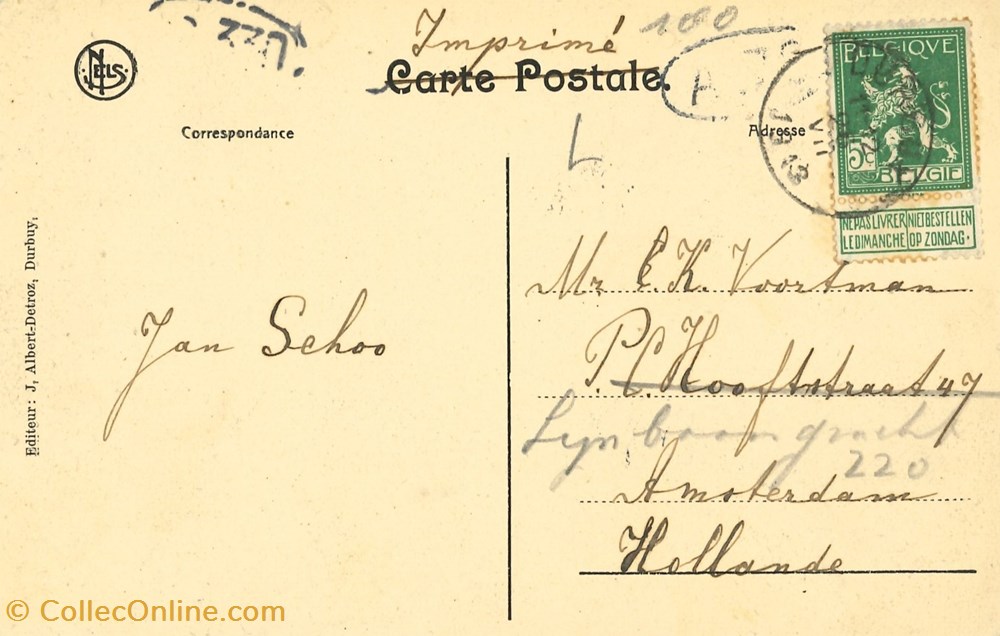 Imprimé
100
Carte Postale.
NELS
Correspondance
Adresse
BELGIQVE
5c
BELGIE
NE PAS LIVRER LE DIMANCHE
NIET BESTELLEN OP ZONDAG.
VII
1913
L
Editeur: J, Albert-Detroz, Durbuy.
Jan Schoo
Mr E. K. Voortman
P.C. Hooftstraat 47
220
Amsterdam
Hollande
© CollecOnline.com